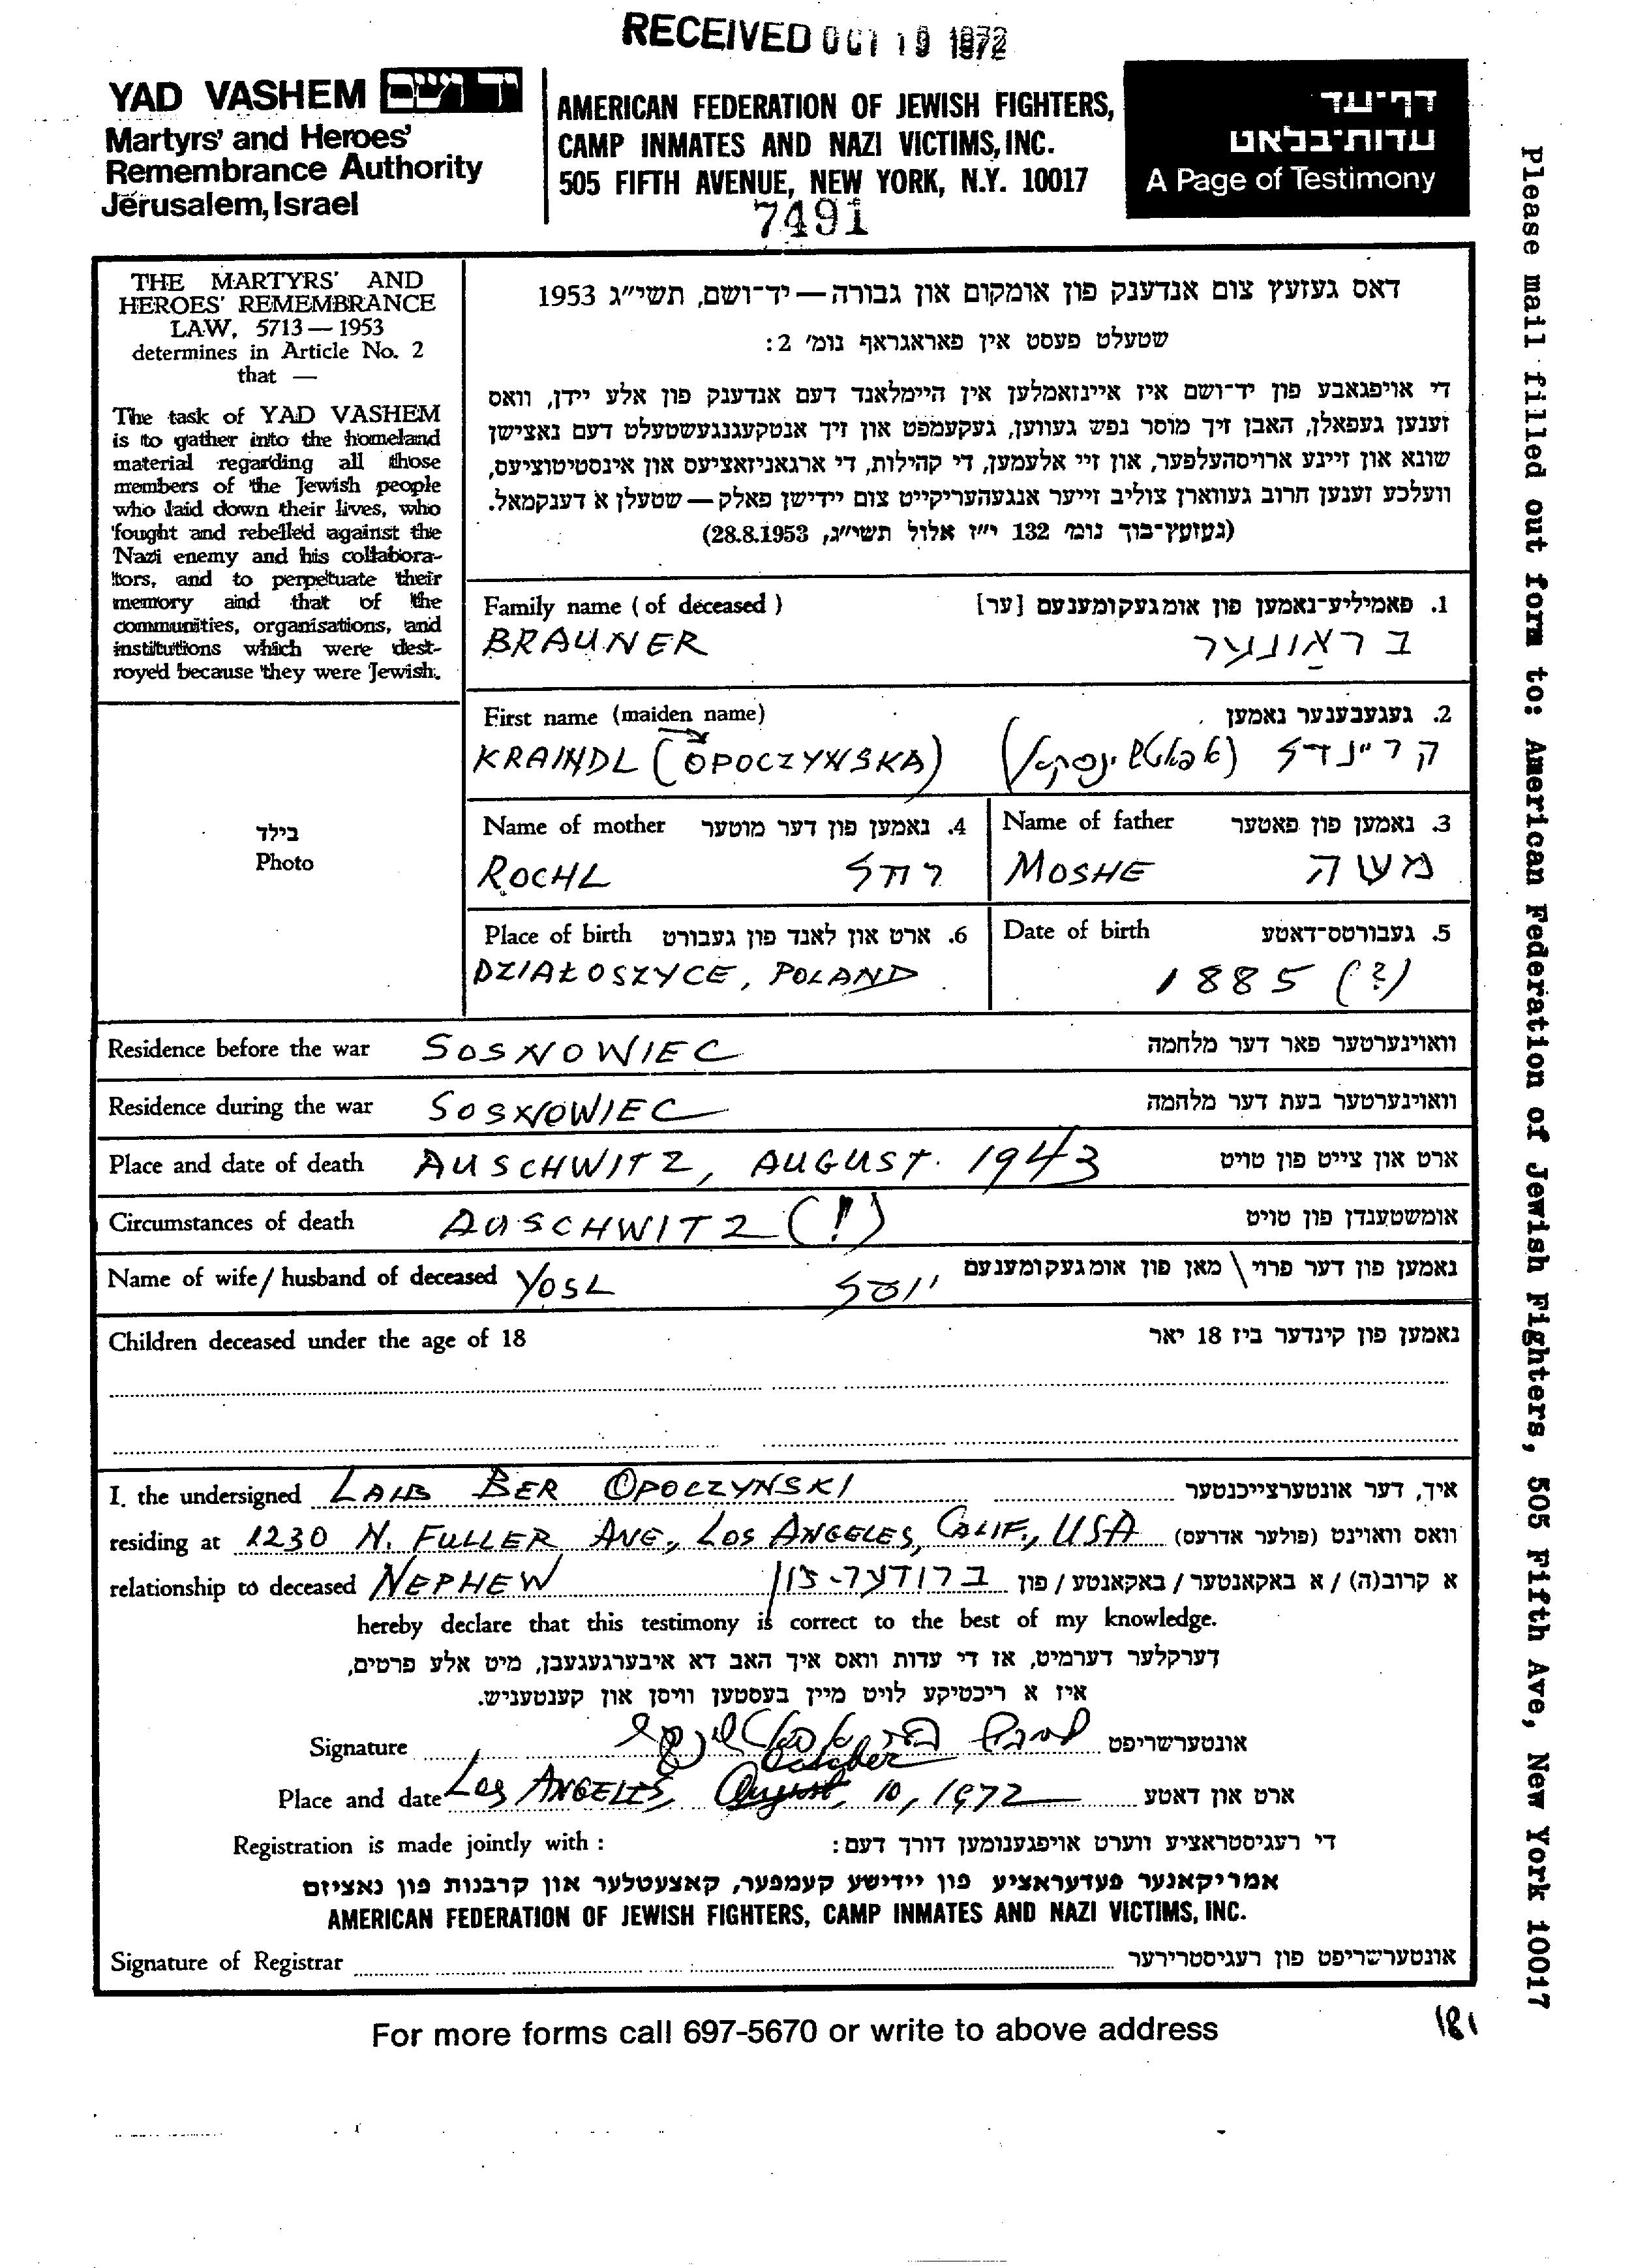 RECEIVED OCT 19 1972
YAD VASHEM יד ושם
Martyrs' and Heroes'
Remembrance Authority
Jerusalem, Israel
AMERICAN FEDERATION OF JEWISH FIGHTERS,
CAMP INMATES AND NAZI VICTIMS, INC.
505 FIFTH AVENUE, NEW YORK, N.Y. 10017
7491
דף-עד
עדות-בלאט
A Page of Testimony
THE MARTYRS' AND
HEROES' REMEMBRANCE
LAW, 5713—1953
determines in Article No. 2
that —
The task of YAD VASHEM
is to gather into the homeland
material regarding all those
members of the Jewish people
who laid down their lives, who
fought and rebelled against the
Nazi enemy and his collabora-
tors, and to perpetuate their
memory and that of the
communities, organisations, and
institutions which were dest-
royed because they were Jewish.
דאס געזעץ צום אנדענק פון אומקום און גבורה — יד-ושם, תשי״ג 1953
שטעלט פעסט אין פאראגראף נומ׳ 2:
די אויפגאבע פון יד-ושם איז איינזאמלען אין היימלאנד דעם אנדענק פון אלע יידן, וואס
זענען געפאלן, האבן זיך מוסר נפש געווען, געקעמפט און זיך אנטקעגנגעשטעלט דעם נאצישן
שונא און זיינע ארויסהעלפער, און זיי אלעמען, די קהילות, די ארגאניזאציעס און אינסטיטוציעס,
וועלכע זענען חרוב געווארן צוליב זייער אנגעהעריקייט צום יידישן פאלק — שטעלן א דענקמאל.
(געזעץ-בוך נומ׳ 132 י״ז אלול תשי״ג, 28.8.1953)
Family name (of deceased) 1. פאמיליע-נאמען פון אומגעקומענעם [ער]
BRAUNER בראַונער
First name (maiden name) 2. געגעבענער נאמען
KRAINDL (OPOCZYNSKA) קריינדל (אפאטשינסקא)
בילד
Photo
Name of mother 4. נאמען פון דער מוטער
ROCHL רחל
Name of father 3. נאמען פון פאטער
MOSHE משה
Place of birth 6. ארט און לאנד פון געבורט
DZIAŁOSZYCE, POLAND
Date of birth 5. געבורטס-דאטע
1885 (?)
Residence before the war SOSNOWIEC וואוינערטער פאר דער מלחמה
Residence during the war SOSNOWIEC וואוינערטער בעת דער מלחמה
Place and date of death AUSCHWITZ, AUGUST. 1943 ארט און צייט פון טויט
Circumstances of death AUSCHWITZ (!) אומשטענדן פון טויט
Name of wife/husband of deceased YOSL יוסל נאמען פון דער פרוי \ מאן פון אומגעקומענעם
Children deceased under the age of 18 נאמען פון קינדער ביז 18 יאר
I, the undersigned LAIB BER OPOCZYNSKI איך, דער אונטערצייכנטער
residing at 1230 N. FULLER AVE., LOS ANGELES, CALIF., USA וואס וואוינט (פולער אדרעס)
relationship to deceased NEPHEW ברודער-זון א קרוב(ה) / א באקאנטער / באקאנטע / פון
hereby declare that this testimony is correct to the best of my knowledge.
דערקלער דערמיט, אז די עדות וואס איך האב דא איבערגעגעבן, מיט אלע פרטים,
איז א ריכטיקע לויט מיין בעסטען וויסן און קענטעניש.
Signature אונטערשריפט
October
Place and date Los ANGELES, August, 10, 1972 ארט און דאטע
Registration is made jointly with : די רעגיסטראציע ווערט אויפגענומען דורך דעם:
אמריקאנער פעדעראציע פון יידישע קעמפער, קאצעטלער און קרבנות פון נאציזם
AMERICAN FEDERATION OF JEWISH FIGHTERS, CAMP INMATES AND NAZI VICTIMS, INC.
Signature of Registrar אונטערשריפט פון רעגיסטרירער
For more forms call 697-5670 or write to above address
181
Please mail filled out form to: American Federation of Jewish Fighters, 505 Fifth Ave, New York 10017